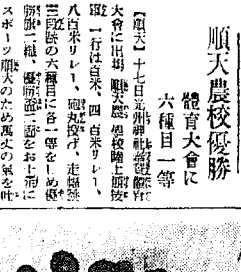 順天農校優勝
體育大會に
六種目一等
【順天】十七日光州神社
大會に出場、順天農學校陸上競技
一行は百米、四百米リレー、
八百米リレー、砲丸投げ、走幅跳
三段跳の六種目に各一等をしめ優
勝旗二組、優勝盃二個をお土産に
スポーツ順天のため萬丈の氣を吐